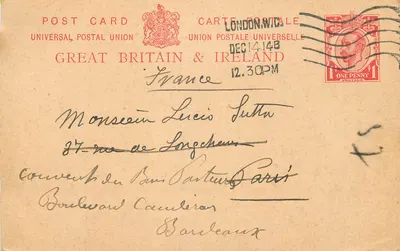 POST CARD CARTE POSTALE
UNIVERSAL POSTAL UNION UNION POSTALE UNIVERSELLE
GREAT BRITAIN & IRELAND
LONDON.W.C.
DEC 14 14
12.30PM
ONE PENNY
France
Monsieur Lucio Sutto
37 rue de Longchamp
Paris
couvent du Bon Pasteur
Boulevard
Bordeaux